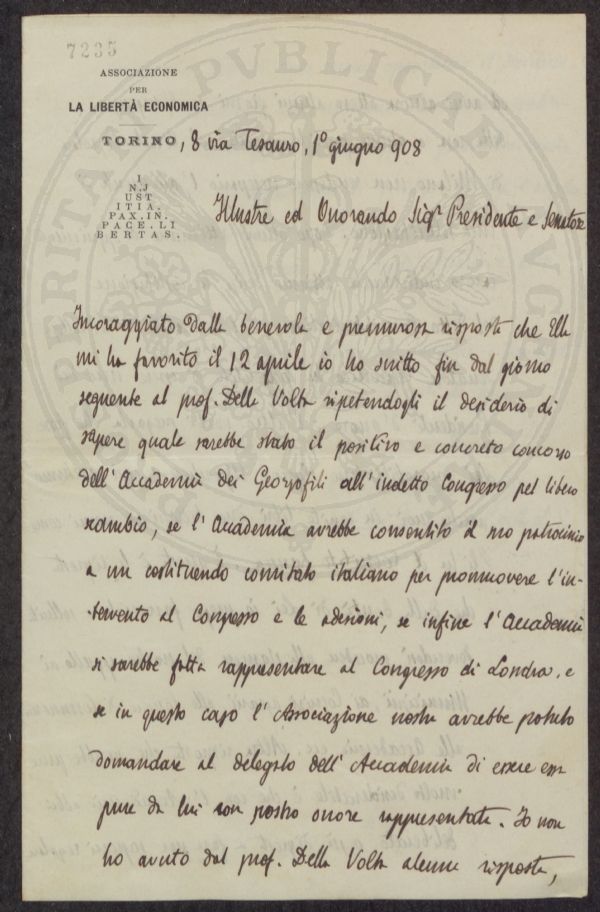 7235
ASSOCIAZIONE
PER
LA LIBERTÀ ECONOMICA
TORINO, 8 via Tesauro, 1º giugno 908
I
N.J
UST
ITIA.
PAX.IN.
PACE.LI
BERTAS.
Illustre ed Onorando Sigr Presidente e Senatore
Incoraggiato dalla benevola e premurosa risposta che Ella
mi ha favorito il 12 aprile io ho scritto fin dal giorno
seguente al prof. Della Volta ripetendogli il desiderio di
sapere quale sarebbe stato il positivo e concreto concorso
dell'Accademia dei Georgofili all'indetto Congresso pel libero
scambio, se l'Accademia avrebbe consentito il suo patrocinio
a un costituendo comitato italiano per promuovere l'in-
tervento al Congresso e le adesioni, se infine l'Accademia
si sarebbe fatta rappresentare al Congresso di Londra, e
se in questo caso l'Associazione nostra avrebbe potuto
domandare al delegato dell'Accademia di essere em
pure da lui con nostro onore rappresentata. Io non
ho avuto dal prof. Della Volta alcuna risposta,